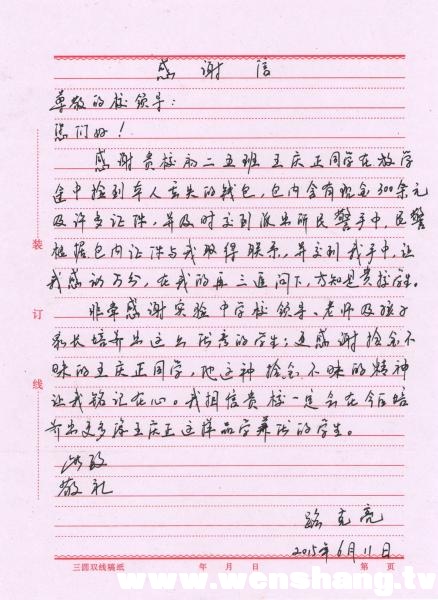 感谢信
尊敬的校领导：
您们好！
感谢贵校初二五班王庆正同学在放学
途中捡到本人丢失的钱包，包内含有现金300余元
及许多证件，并及时交到派出所民警手中，民警
根据包内证件与我取得联系，并交到我手中，让
我感动万分，在我的再三追问下，方知是贵校学生。
非常感谢实验中学校领导、老师及孩子
家长培养出这么优秀的学生；更感谢拾金不
昧的王庆正同学，他这种拾金不昧的精神
让我铭记在心。我相信贵校一定会在今后培
养出更多像王庆正这样品学兼优的学生。
此致
敬礼
路克亮
2015年6月11日
装
订
线
三圆双线稿纸 年 月 日 第 页
www.wenshang.tv